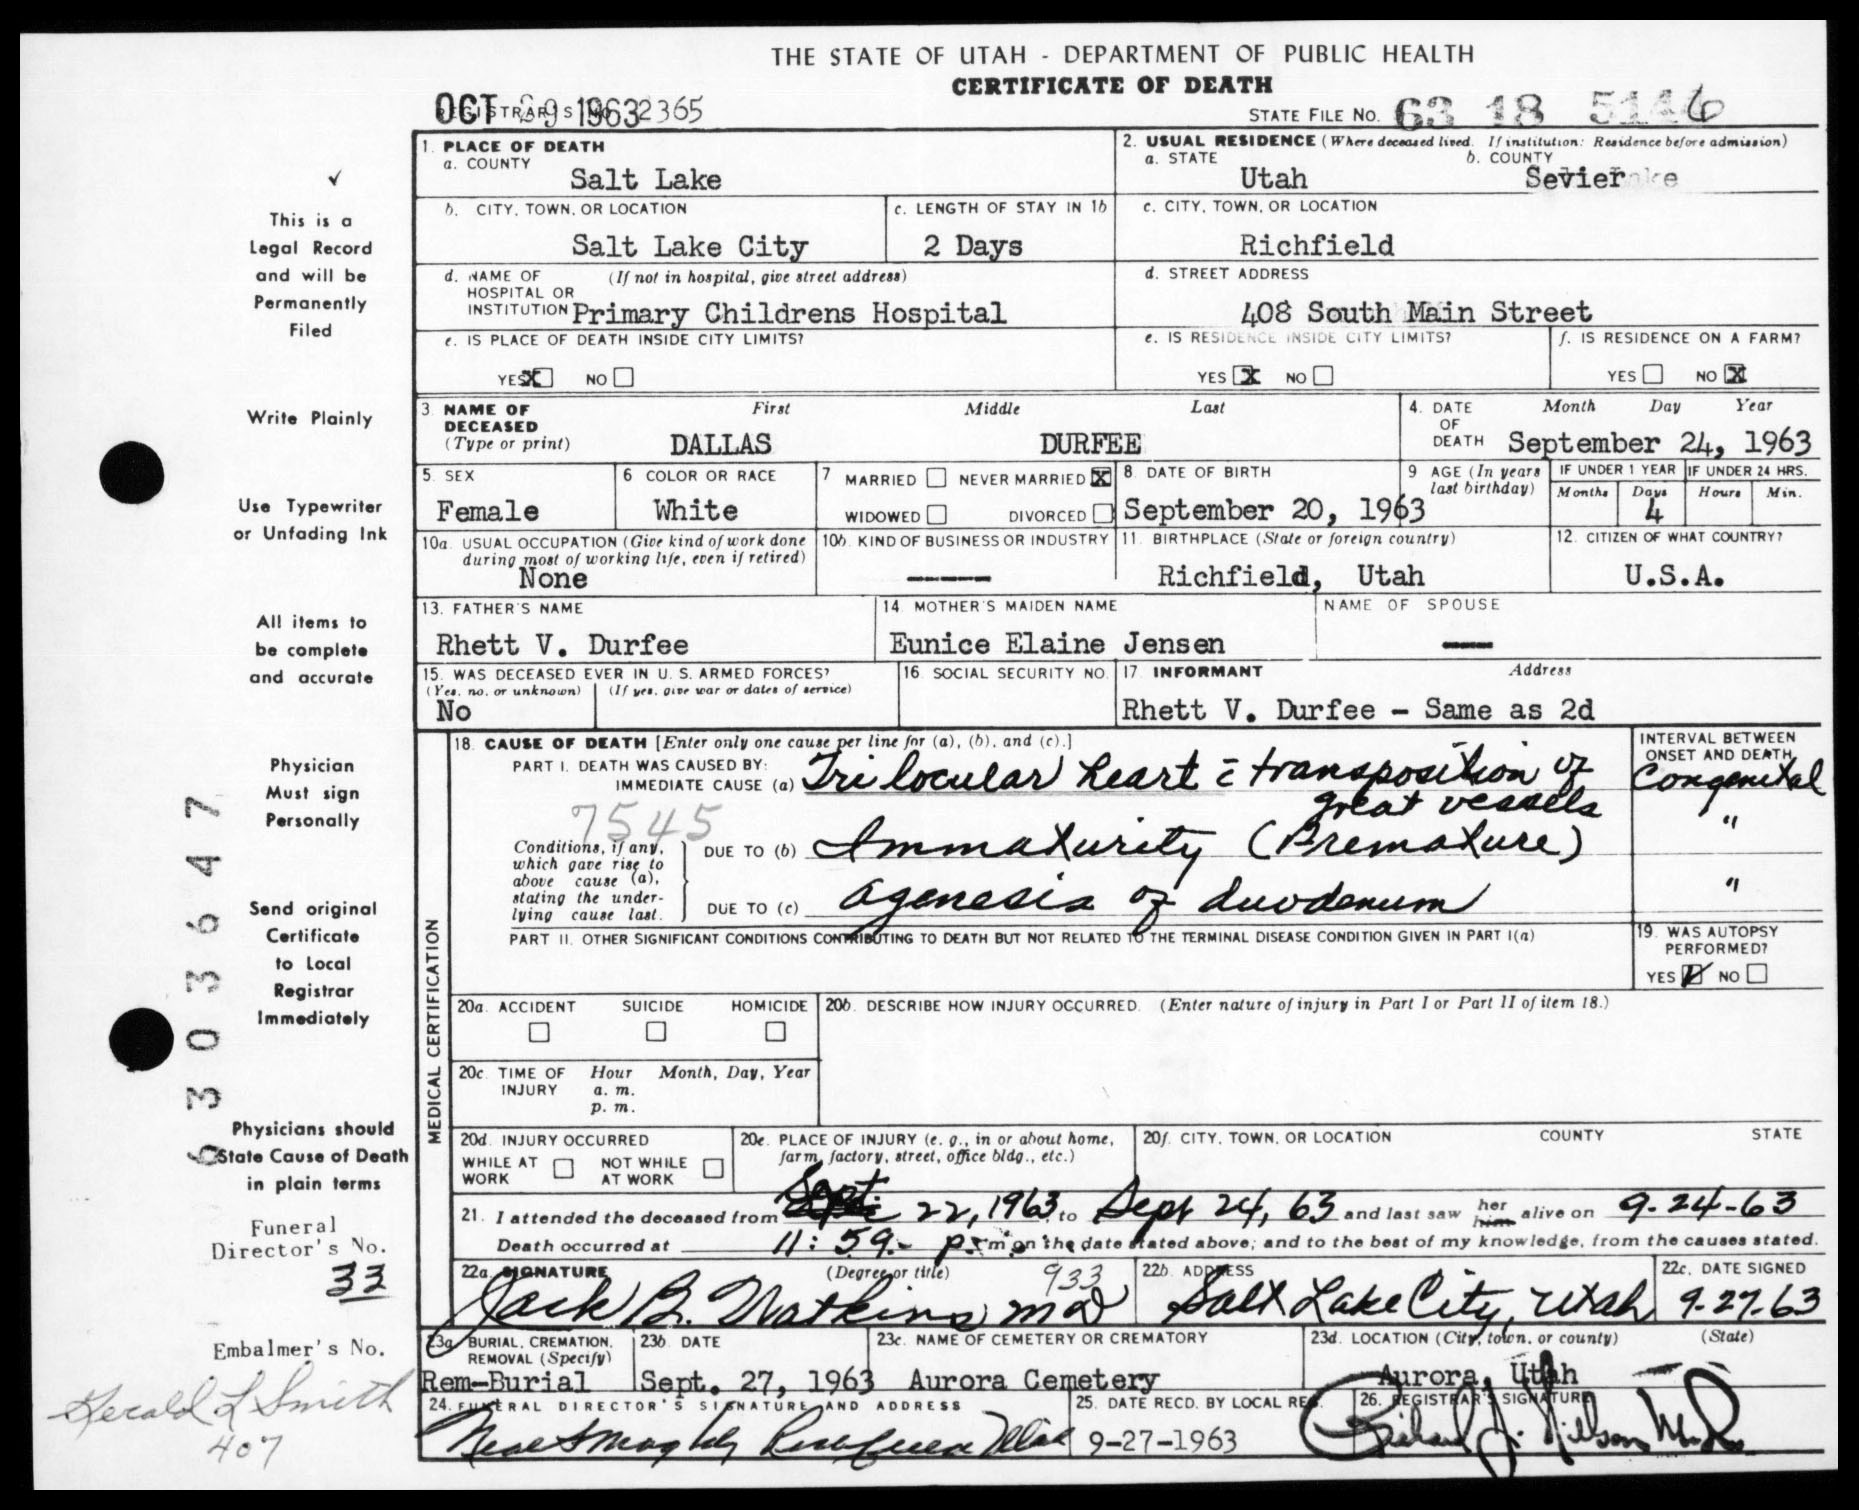 THE STATE OF UTAH - DEPARTMENT OF PUBLIC HEALTH
CERTIFICATE OF DEATH
OCT 29 1963
REGISTRAR'S NO. 2365
STATE FILE NO. 63 18 5146
1. PLACE OF DEATH
a. COUNTY
Salt Lake
2. USUAL RESIDENCE (Where deceased lived. If institution: Residence before admission)
a. STATE
Utah
b. COUNTY
Sevier
b. CITY, TOWN, OR LOCATION
Salt Lake City
c. LENGTH OF STAY IN 1b
2 Days
c. CITY, TOWN, OR LOCATION
Richfield
d. NAME OF HOSPITAL OR INSTITUTION (If not in hospital, give street address)
Primary Childrens Hospital
d. STREET ADDRESS
408 South Main Street
e. IS PLACE OF DEATH INSIDE CITY LIMITS?
YES X NO
e. IS RESIDENCE INSIDE CITY LIMITS?
YES X NO
f. IS RESIDENCE ON A FARM?
YES NO X
3. NAME OF DECEASED (Type or print)
First Middle Last
DALLAS DURFEE
4. DATE OF DEATH
Month Day Year
September 24, 1963
5. SEX
Female
6 COLOR OR RACE
White
7 MARRIED NEVER MARRIED X
WIDOWED DIVORCED
8. DATE OF BIRTH
September 20, 1963
9 AGE (In years last birthday)
IF UNDER 1 YEAR IF UNDER 24 HRS.
Months Days Hours Min.
4
10a. USUAL OCCUPATION (Give kind of work done during most of working life, even if retired)
None
10b. KIND OF BUSINESS OR INDUSTRY
-----
11. BIRTHPLACE (State or foreign country)
Richfield, Utah
12. CITIZEN OF WHAT COUNTRY?
U.S.A.
13. FATHER'S NAME
Rhett V. Durfee
14. MOTHER'S MAIDEN NAME
Eunice Elaine Jensen
NAME OF SPOUSE
---
15. WAS DECEASED EVER IN U. S. ARMED FORCES?
(Yes, no, or unknown) (If yes, give war or dates of service)
No
16. SOCIAL SECURITY NO.
17 INFORMANT Address
Rhett V. Durfee - Same as 2d
MEDICAL CERTIFICATION
18. CAUSE OF DEATH [Enter only one cause per line for (a), (b), and (c).]
PART I. DEATH WAS CAUSED BY:
IMMEDIATE CAUSE (a) Tri locular heart c̄ transposition of great vessels
7545
Conditions, if any, which gave rise to above cause (a), stating the underlying cause last.
DUE TO (b) Immaturity (Premature)
DUE TO (c) agenesis of duodenum
INTERVAL BETWEEN ONSET AND DEATH
Congenital
"
"
PART II. OTHER SIGNIFICANT CONDITIONS CONTRIBUTING TO DEATH BUT NOT RELATED TO THE TERMINAL DISEASE CONDITION GIVEN IN PART I(a)
19. WAS AUTOPSY PERFORMED?
YES ✓ NO
20a. ACCIDENT SUICIDE HOMICIDE
20b. DESCRIBE HOW INJURY OCCURRED. (Enter nature of injury in Part I or Part II of item 18.)
20c. TIME OF INJURY
Hour Month, Day, Year
a. m.
p. m.
20d. INJURY OCCURRED
WHILE AT WORK NOT WHILE AT WORK
20e. PLACE OF INJURY (e. g., in or about home, farm, factory, street, office bldg., etc.)
20f. CITY, TOWN, OR LOCATION COUNTY STATE
21. I attended the deceased from Sept. 22, 1963, to Sept 24, 63 and last saw her him alive on 9-24-63
Death occurred at 11:59 p. m on the date stated above; and to the best of my knowledge, from the causes stated.
22a. SIGNATURE (Degree or title)
Jack B. Watkins MD
933
22b. ADDRESS
Salt Lake City, Utah
22c. DATE SIGNED
9-27-63
23a. BURIAL, CREMATION, REMOVAL (Specify)
Rem-Burial
23b. DATE
Sept. 27, 1963
23c. NAME OF CEMETERY OR CREMATORY
Aurora Cemetery
23d. LOCATION (City, town, or county) (State)
Aurora, Utah
24. FUNERAL DIRECTOR'S SIGNATURE AND ADDRESS
25. DATE RECD. BY LOCAL REG.
9-27-1963
26. REGISTRAR'S SIGNATURE
✓
This is a
Legal Record
and will be
Permanently
Filed
Write Plainly
Use Typewriter
or Unfading Ink
All items to
be complete
and accurate
Physician
Must sign
Personally
Send original
Certificate
to Local
Registrar
Immediately
Physicians should
State Cause of Death
in plain terms
6303647
Funeral
Director's No.
33
Embalmer's No.
Gerald L Smith
407